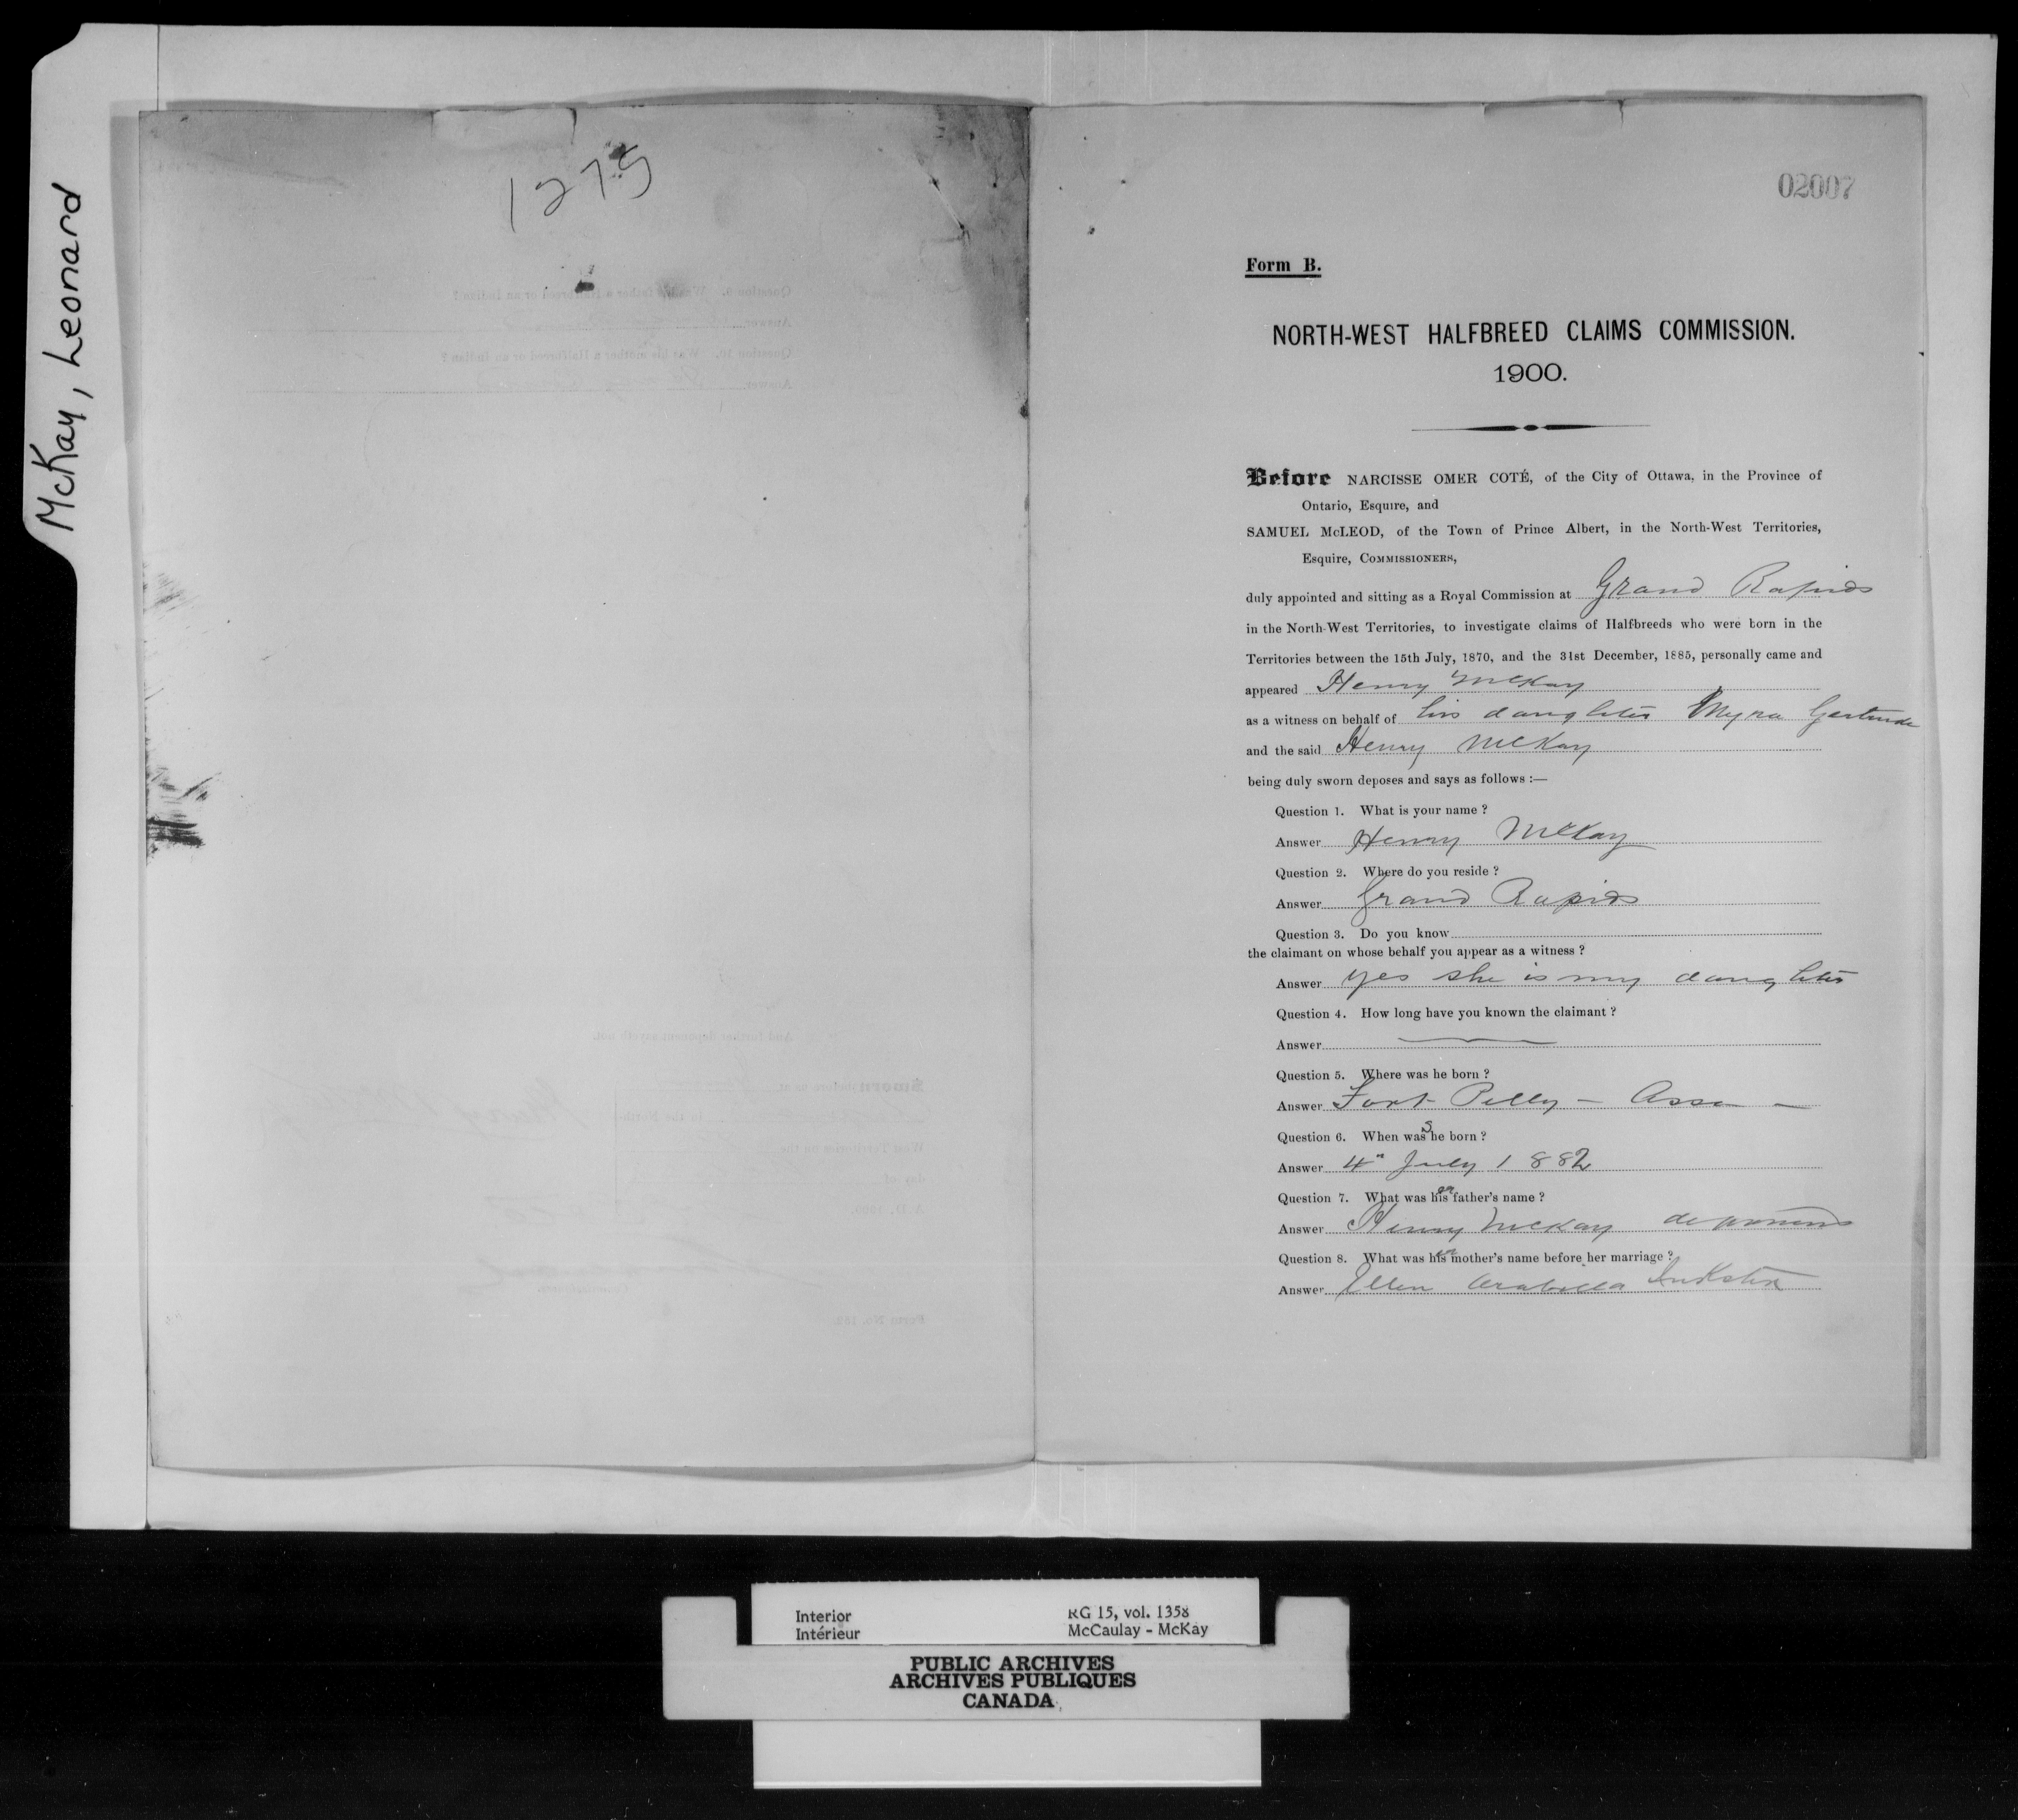 McKay, Leonard
1275
02007
Form B.
NORTH-WEST HALFBREED CLAIMS COMMISSION.
1900.
Before NARCISSE OMER COTÉ, of the City of Ottawa, in the Province of
Ontario, Esquire, and
SAMUEL McLEOD, of the Town of Prince Albert, in the North-West Territories,
Esquire, COMMISSIONERS,
duly appointed and sitting as a Royal Commission at Grand Rapids
in the North-West Territories, to investigate claims of Halfbreeds who were born in the
Territories between the 15th July, 1870, and the 31st December, 1885, personally came and
appeared Henry McKay
as a witness on behalf of his daughter Myra Gertrude
and the said Henry McKay
being duly sworn deposes and says as follows :—
Question 1. What is your name ?
Answer Henry McKay
Question 2. Where do you reside ?
Answer Grand Rapids
Question 3. Do you know
the claimant on whose behalf you appear as a witness ?
Answer yes she is my daughter
Question 4. How long have you known the claimant ?
Answer —
Question 5. Where was he born ?
Answer Fort Pelly — Assa —
Question 6. When was she born ?
Answer 4" July 1882
Question 7. What was her father's name ?
Answer Henry McKay deponent
Question 8. What was her mother's name before her marriage ?
Answer Ellen Arabella Inkster
Interior RG 15, vol. 1358
Intérieur McCaulay - McKay
PUBLIC ARCHIVES
ARCHIVES PUBLIQUES
CANADA